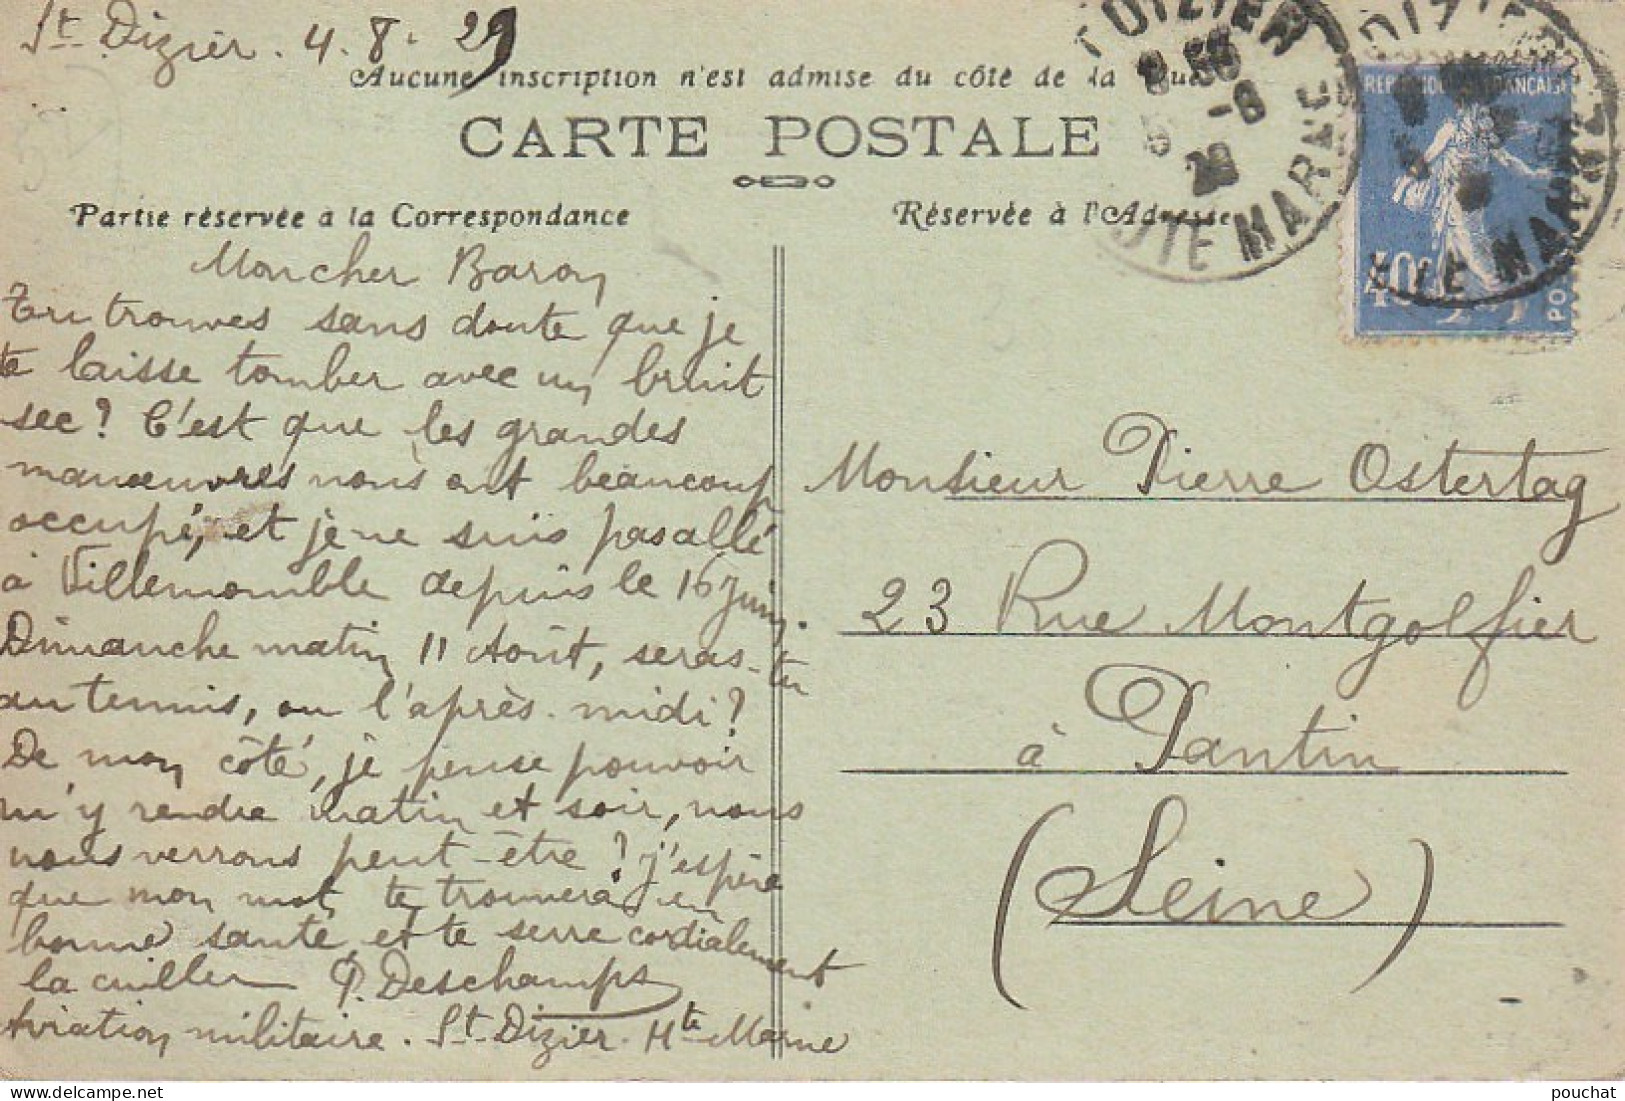 St Dizier. 4. 8. 29
Aucune inscription n'est admise du côté de la
CARTE POSTALE
Partie réservée à la Correspondance
Réservée à l'Adresse
DIZIER
-8
29
HTE MARNE
REPUBLIQUE FRANÇAISE
40c
Moncher Baron
Tu trouves sans doute que je
te laisse tomber avec un bruit
sec? C'est que les grandes
manœuvres nous ont beaucoup
occupé, et je ne suis pas allé
à Villemomble depuis le 16 juin.
Dimanche matin 11 Août, seras-tu
au tennis, ou l'après-midi?
De mon côté, je pense pouvoir
m'y rendre matin et soir, nous
nous verrons peut-être? j'espère
que mon mot te trouvera en
bonne santé et te serre cordialement
la cuiller P. Deschamps
Aviation militaire. St Dizier. Hte Marne
Monsieur Pierre Ostertag
23 Rue Montgolfier
à Pantin
(Seine)
pouchat